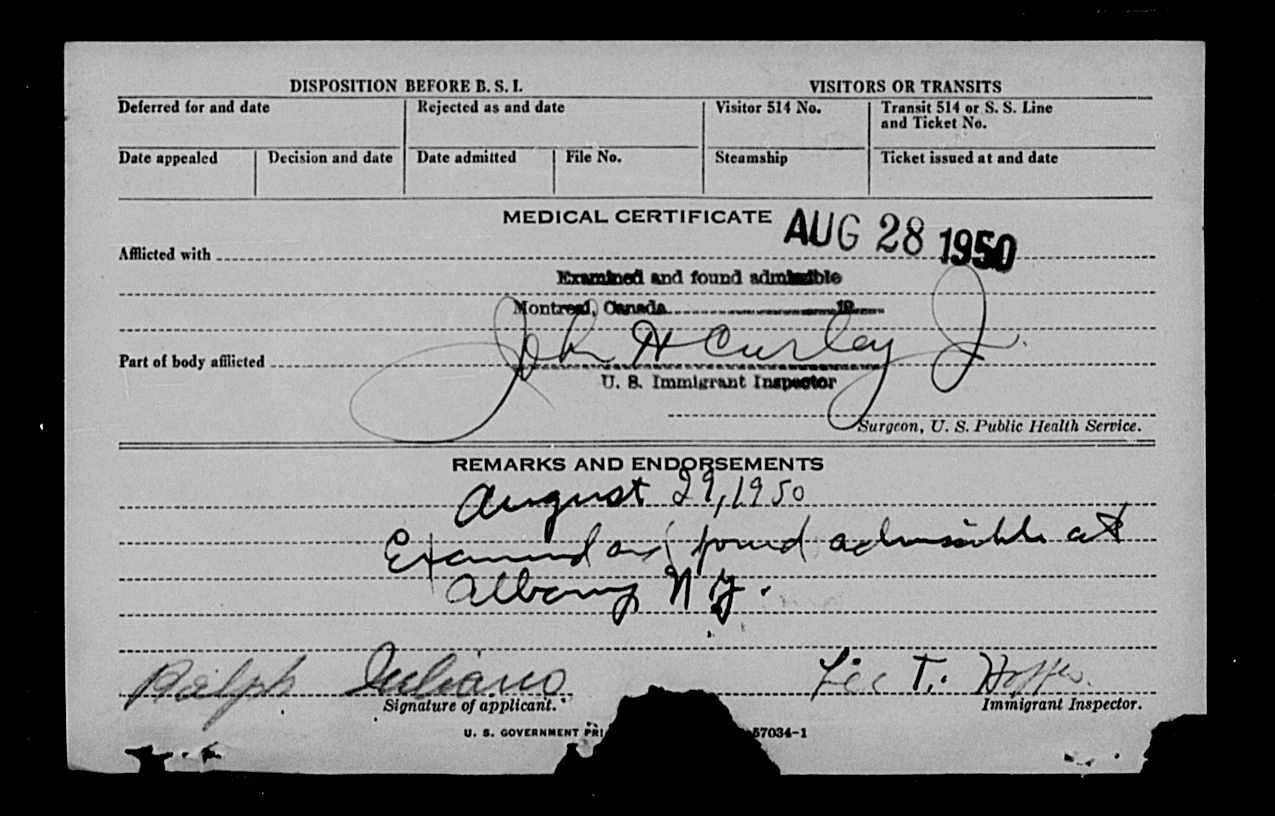 DISPOSITION BEFORE B. S. I.
VISITORS OR TRANSITS
Deferred for and date
Rejected as and date
Visitor 514 No.
Transit 514 or S. S. Line
and Ticket No.
Date appealed
Decision and date
Date admitted
File No.
Steamship
Ticket issued at and date
MEDICAL CERTIFICATE
AUG 28 1950
Afflicted with
Examined and found admissible
Montreal, Canada 19
John H Curley Jr.
Part of body afflicted
U. S. Immigrant Inspector
Surgeon, U. S. Public Health Service.
REMARKS AND ENDORSEMENTS
August 29, 1950
Examined and found admissible at
Albany N Y.
Ralph Iuliano
T.
Signature of applicant.
Immigrant Inspector.
U. S. GOVERNMENT PRI
57034-1